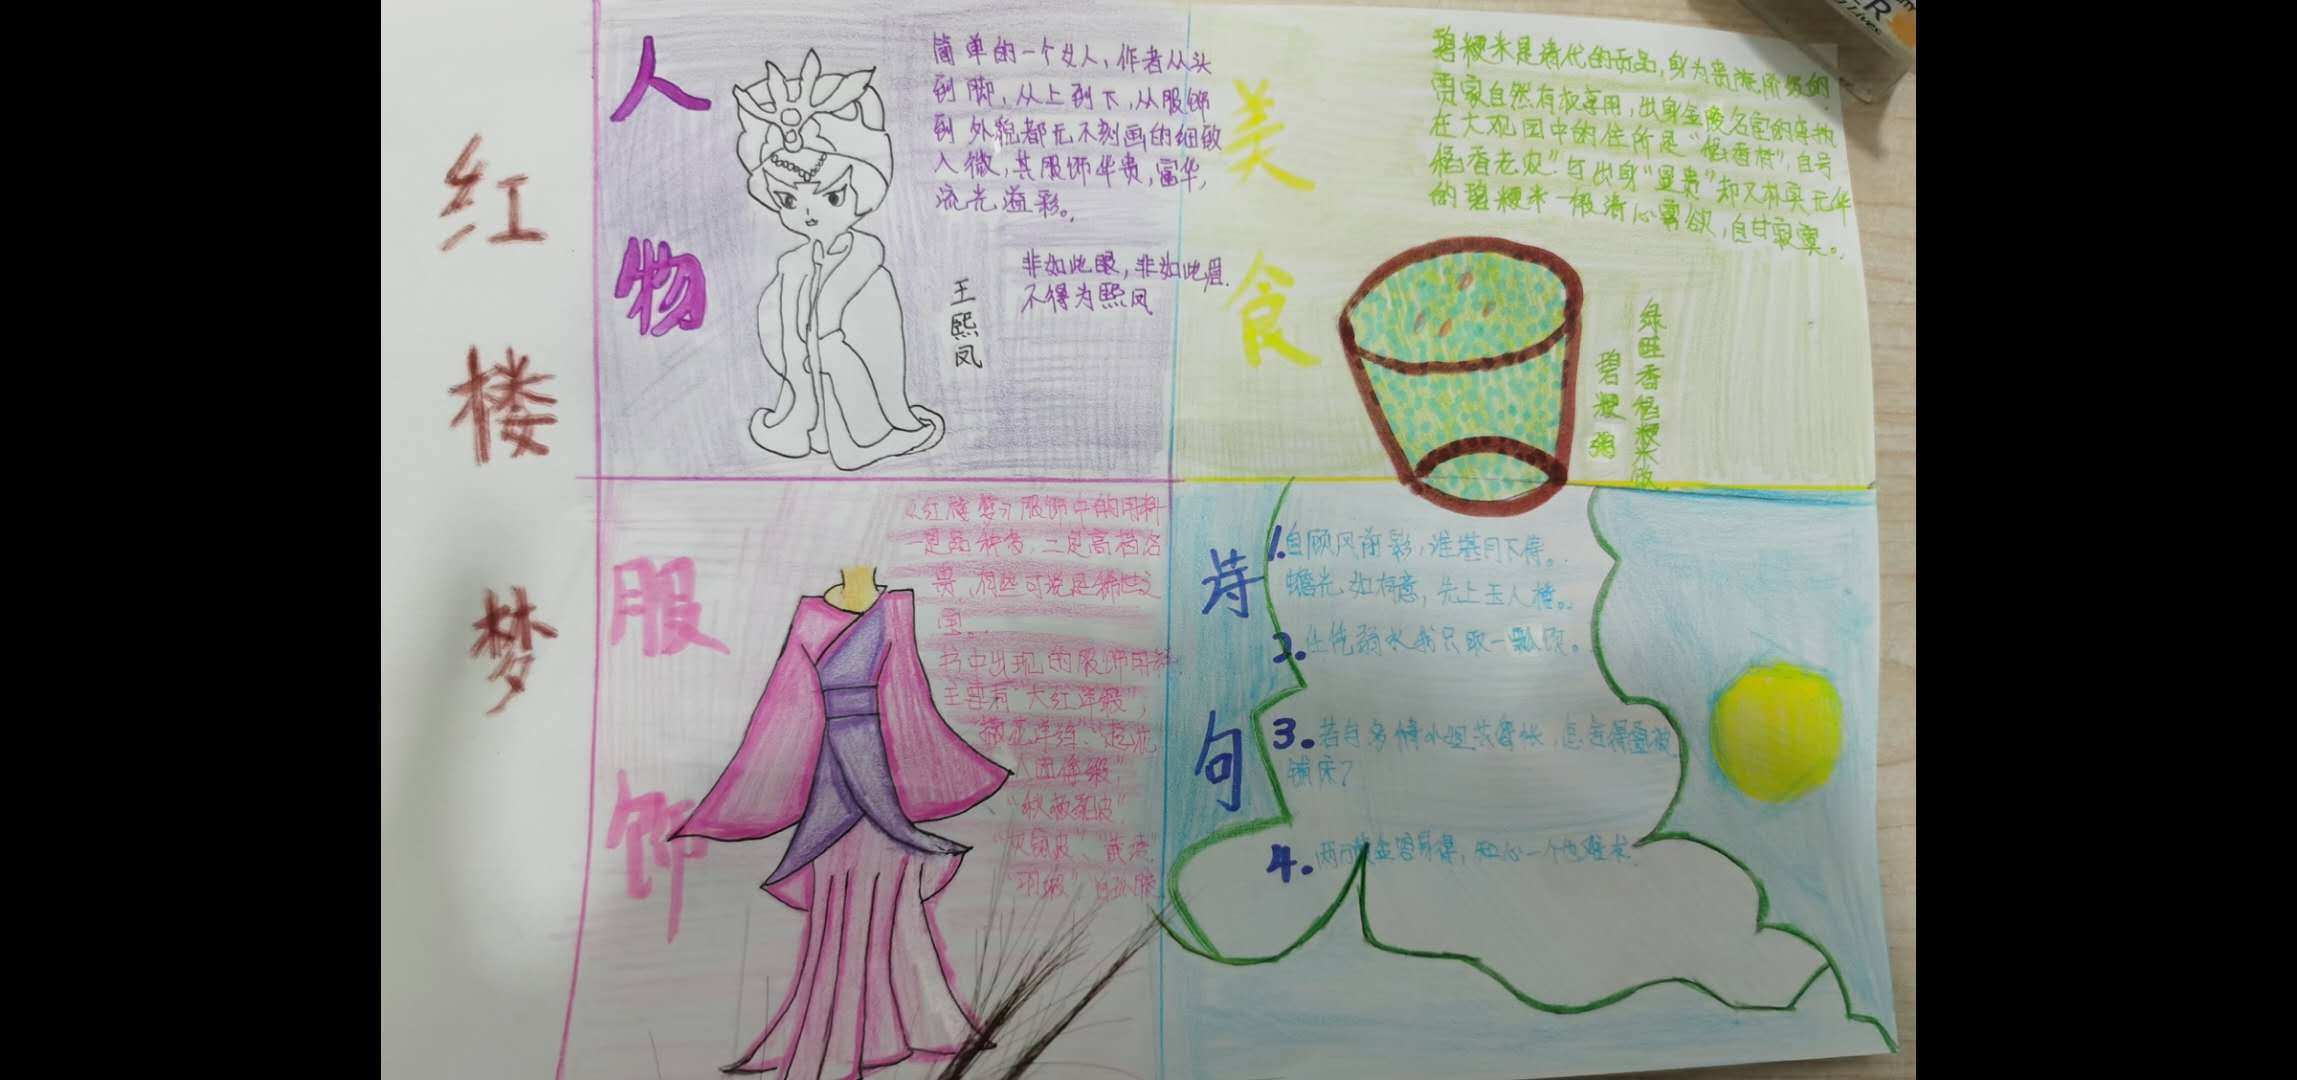 红楼梦
人物
简单的一个女人，作者从头
到脚，从上到下，从服饰
到外貌都无不刻画的细致
入微，其服饰华贵，富华，
流光溢彩。
非如此眼，非如此眉.
不得为熙凤
王熙凤
美食
碧粳米是清代的贡品，身为贵族阶级的
贾家自然有权享用，出身金陵名宦的李纨
在大观园中的住所是“稻香村”，自号
稻香老农”.与出身“显贵”却又朴实无华
的碧粳米一般清心寡欲，自甘寂寞。
绿畦香稻粳米饭
碧粳粥
服饰
《红楼梦》服饰中的用料
一是品种多，二是高档名
贵，有些可说是稀世之
宝。
书中出现的服饰用料
主要有“大红洋缎”，
“撒花洋绉”“起花
八团倭缎”，
“秋板貂皮”
“灰鼠皮”、
“羽缎”白狐腋
诗句
1.自顾风前影，谁堪月下俦。
蟾光如有意，先上玉人楼。
2.任他弱水我只取一瓢饮。
3.若与多情小姐共鸳帐，怎舍得叠被
铺床？
4.两黄金容易得，知心一个也难求.